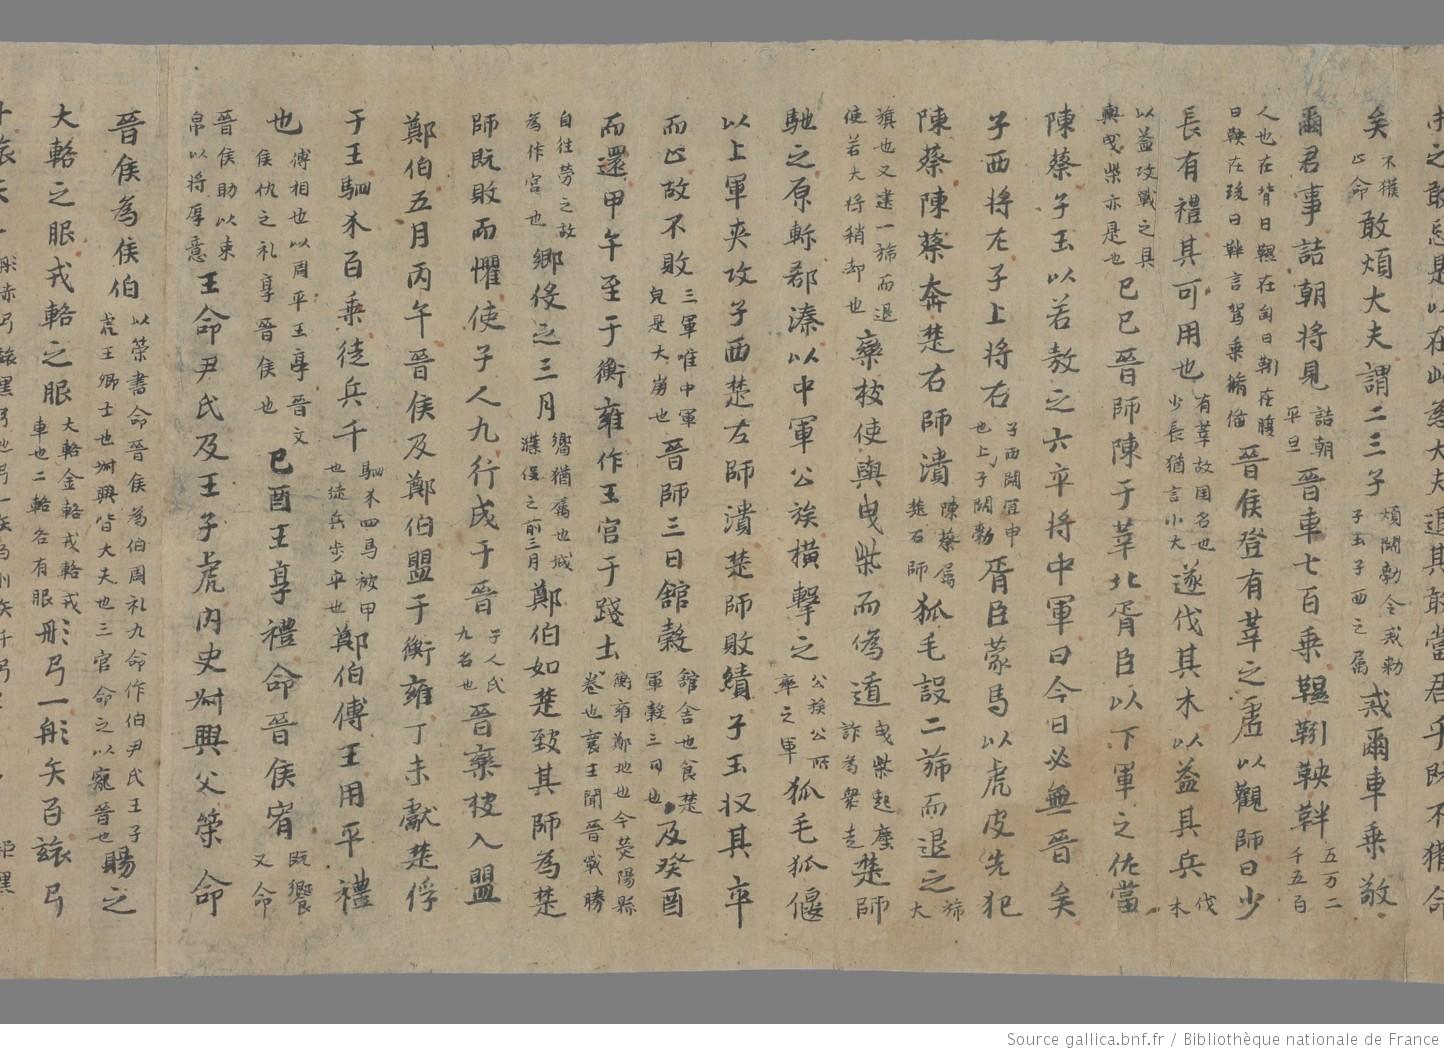 之敢忘是以在此為大夫退其敢當君乎既不獲命
矣不獲止命敢煩大夫謂二三子煩鬬勃令戒勑子玉子西之屬戒爾車乘敬
爾君事詰朝将見詰朝平旦晉車七百乘韅靷鞅靽五万二千五百
人也在背曰韅在匈曰靷在腹曰鞅在後曰靽言駕乘脩俻晉侯登有莘之虛以觀師曰少
長有禮其可用也有莘故国名也少長猶言小大遂伐其木以益其兵伐木
以益攻戰之具輿曳柴亦是也己巳晉師陳于莘北胥臣以下軍之佐當
陳蔡子玉以若敖之六卒将中軍曰今日必無晉矣
子西将左子上将右子西鬬宜申也上子鬬勃胥臣蒙馬以虎皮先犯
陳蔡陳蔡奔楚右師潰陳蔡屬楚右師狐毛設二斾而退之斾大
旗也又建一斾而退使若大将稍却也欒枝使輿曳柴而偽遁曳柴起塵詐為衆走楚師
馳之原軫郤溱以中軍公族橫擊之公族公所率之軍狐毛狐偃
以上軍夾攻子西楚左師潰楚師敗績子玉收其卒
而止故不敗三軍唯中軍皃是大崩也晉師三日館穀館舍也食楚軍穀三日也及癸酉
而還甲午至于衡雍作王宮于踐土衡雍鄭地也今熒陽縣卷也襄王聞晉戰勝
自往勞之故為作宮也鄉侵之三月嚮猶屬也城濮侵之前三月鄭伯如楚致其師為楚
師既敗而懼使子人九行成于晉子人氏九名也晉欒枝入盟
鄭伯五月丙午晉侯及鄭伯盟于衡雍丁未獻楚俘
于王駟介百乘徒兵千駟介四馬被甲也徒兵步卒也鄭伯傅王用平禮
也傅相也以周平王享晉文侯仇之礼享晉侯也己酉王享禮命晉侯宥既饗又命
晉侯助以束帛以将厚意王命尹氏及王子虎内史叔興父策命
晉侯為侯伯以策書命晉侯為伯周礼九命作伯尹氏王子虎王卿士也叔興皆大夫也三官命之以寵晉也賜之
大輅之服戎輅之服大輅金輅戎輅戎車也二輅各有服彤弓一彤矢百玈弓
Source gallica.bnf.fr / Bibliothèque nationale de France